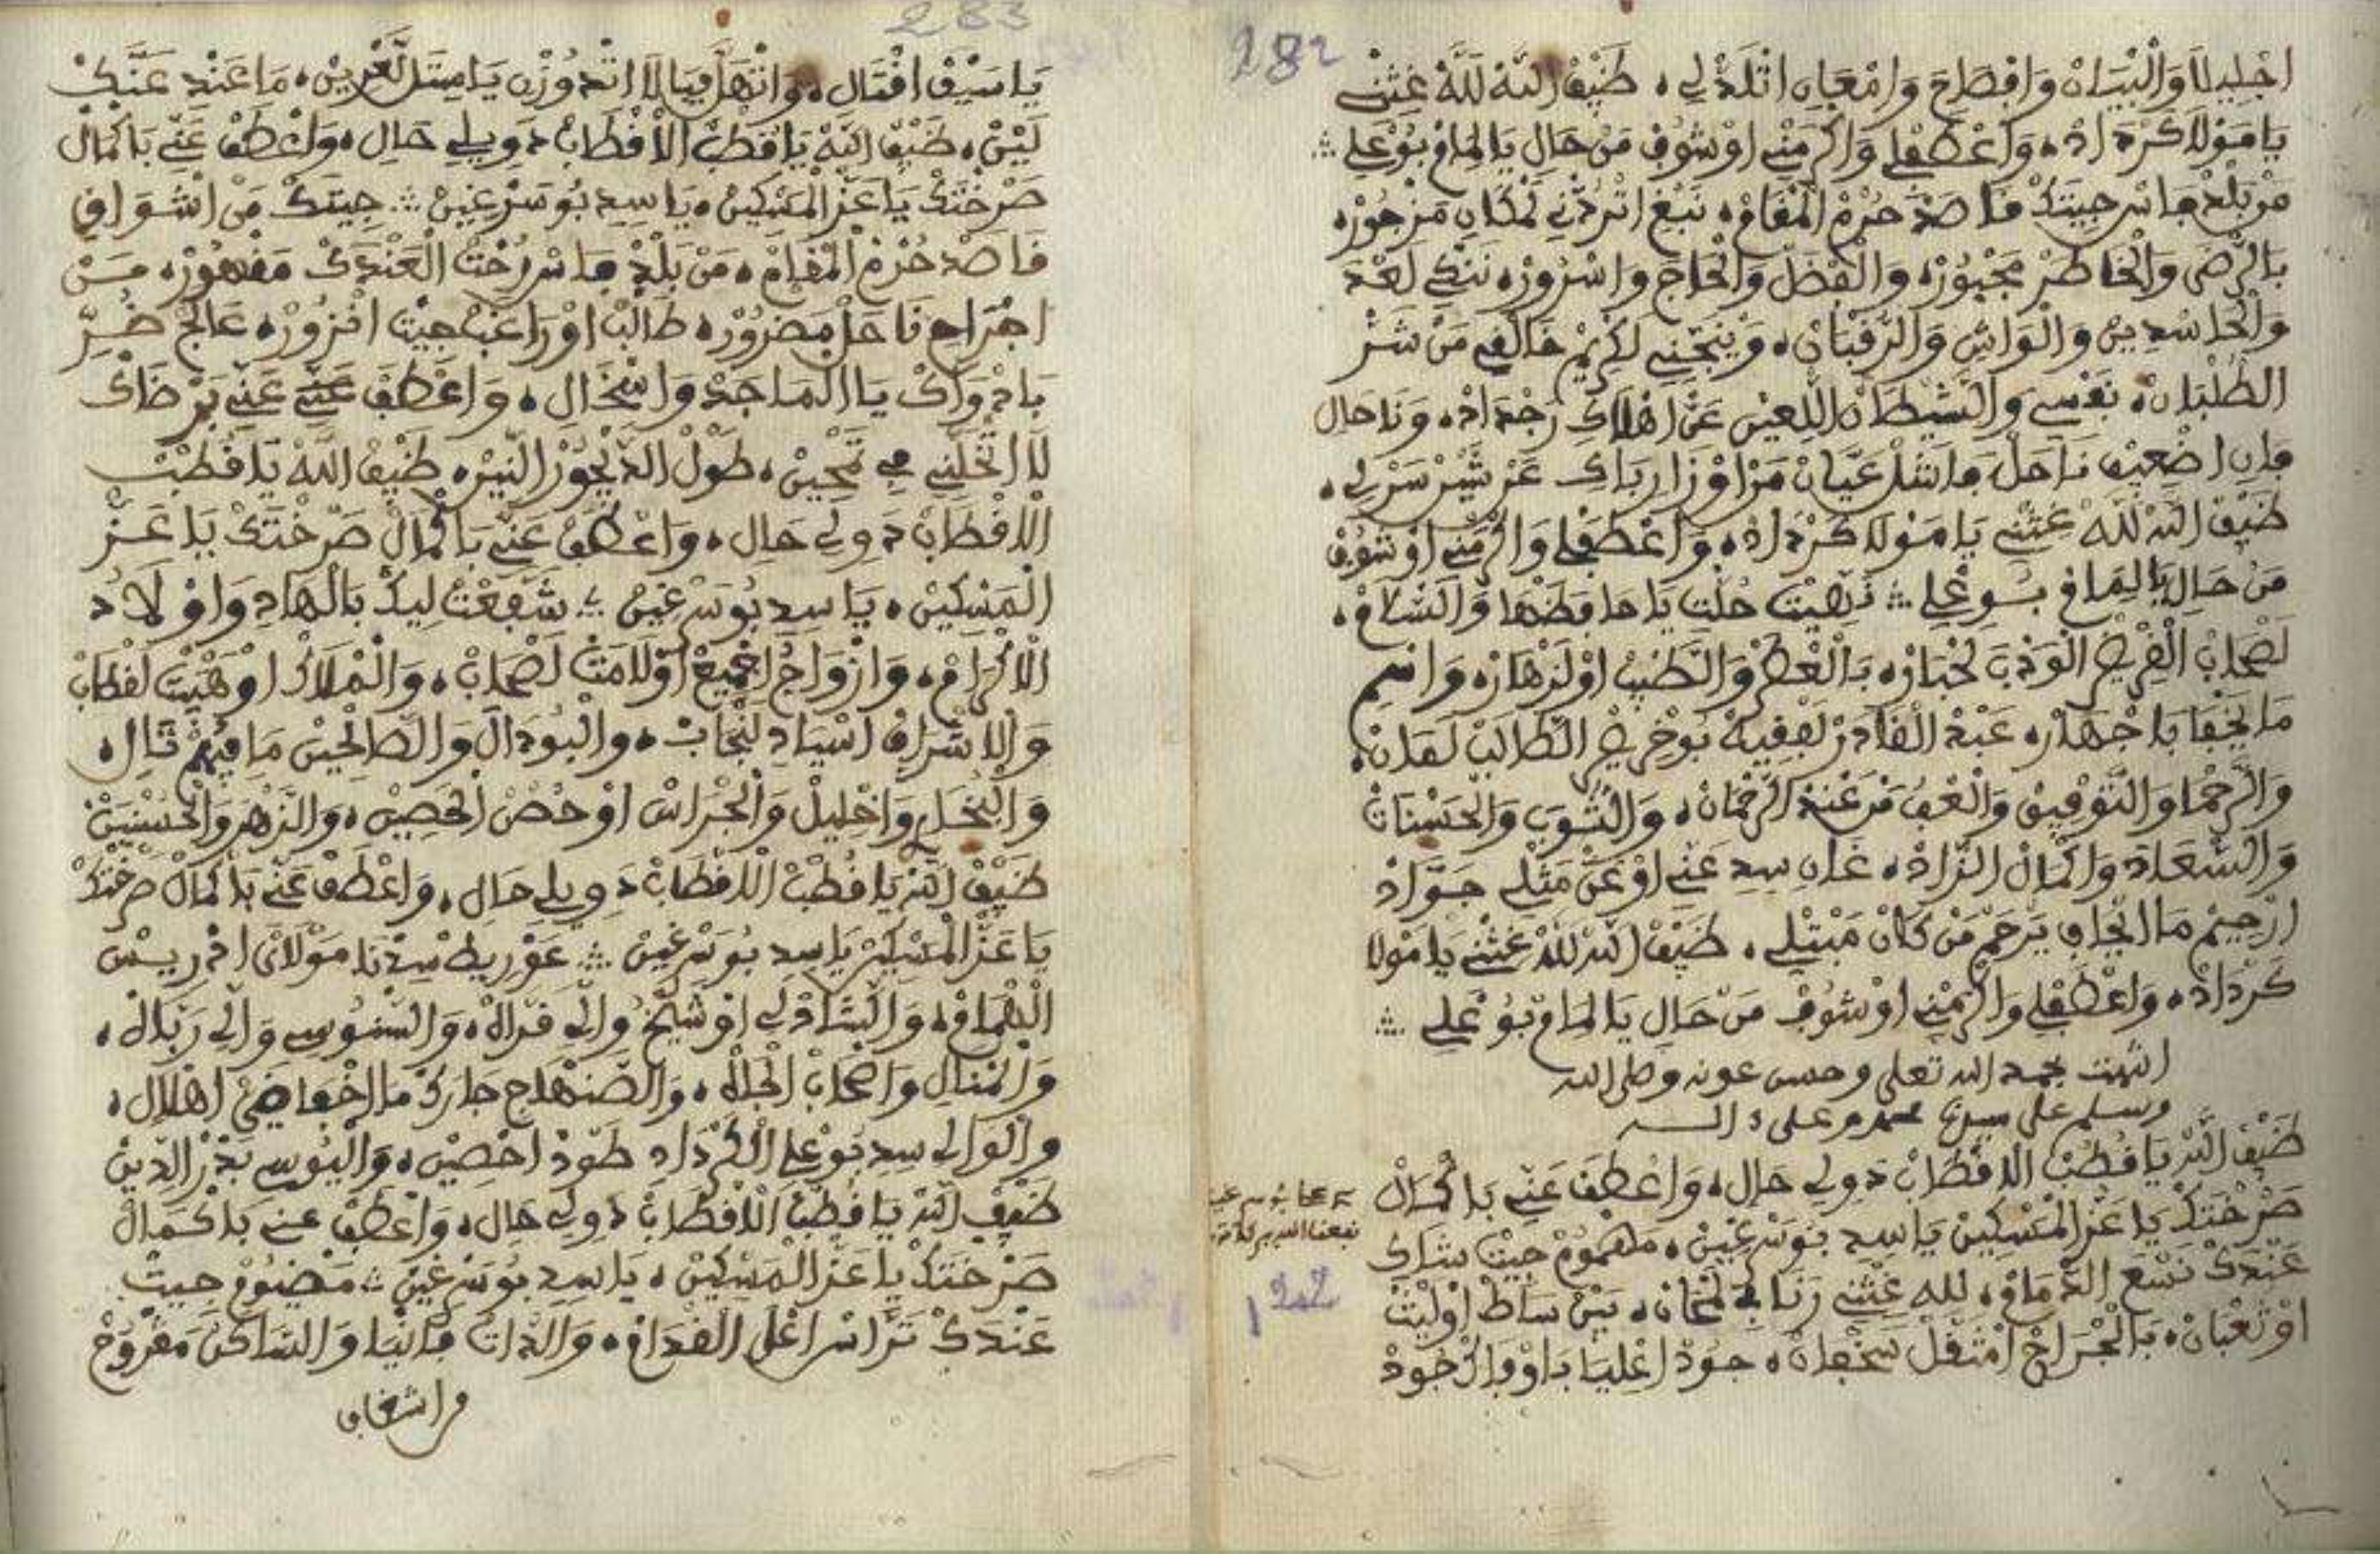 282
اجْلِيلَا وَالْبَيَان وَافْصَاحَ وَامْعَانِ اتْلَذْلِي، ضَيْف اللَّه لِلَّهْ غِثْنِي
يَا مَوْلَا كَرْدَادْ، وَاعْطَفْلِي وَاكْرَمْنِي اوْشُوفْ مَنْ حَالِ يَا لِمَامْ بُوعْلِي ؞
مَنْ بَلْدْ فَاسْ جِيتَكْ قَاصَدْ حُرْمْ الْمْقَامْ، نَبْغِ اتْرُدْنِي لَمْكَانِ مَزْجُورْ،
بَالرّْضَى وَالْخَاطَرْ مَجْبُورْ، وَالْفْضَلْ وَالْحَاجَ وَاسْرُورْ، نَنْكِي لَعْدَ
وَالْحَاسْدِينْ وَالْوَاشِ وَالرَّقْبَانْ، وَيْنَجِّنِي لَكْرِيمْ خَالْقِي مَنْ شَرْ
الطُّلْبَانْ، نَفْسِي وَالشِّيطَانْ اللَّعِينْ عَنْ اهْلَاكِ، وَنَا حَالِ
فَانِ اضْعِيفْ نَاحَلْ عَيَّانْ مَزْاوْقْ
ضَيْف اللَّه لِلَّهْ غِثْنِي يَا مَوْلَا كَرْدَادْ، وَاعْطَفْلِي وَاكْرَمْنِي اوْشُوفْ
مَنْ حَالِ يَا لِمَامْ بُوعْلِي ؞ نَهِيتْ حُلْتِ يَا حَافَظْهَا وَالسّْلَامْ،
لَصْحَابْ الْقَرِيضْ الْوَذْبَ لَخْبَارْ، بَالْعْطَرْ وَالطِّيبْ اوْلَزْهَارْ، وَاسْمِ
مَا يَخْفَا بَاجْهَارْ، عَبْدْ الْقَادَرْ لَفْقِيهْ بُوخْرِيصْ الطَّالَبْ لَغْدَانْ،
وَالرَّحْمَا وَالتَّوْفِيقْ وَالْعْفُ مَنْ عَنْدْ الرَّحْمَانْ، وَالثُّوبِ وَالْحَسْنَاتْ
وَالسّْعَادَ وَاكْمَالْ الزَّادْ، غَانِ سِيدِ عَنِّي اوْعَنْ مَثْلِي جَوَّادْ
ارْحِيمْ مَا ايْجَافِ يَرْحَمْ مَنْ كَانْ مَبْتْلِي، ضَيْف اللَّه لِلَّهْ غِثْنِي يَا مَوْلَا
كَرْدَادْ، وَاعْطَفْلِي وَاكْرَمْنِي اوْشُوفْ مَنْ حَالِ يَا لِمَامْ بُوعْلِي ؞
انتهت بحمد الله تعلى وحسن عونه وصلى الله
وسلم على سيدنا محمد وعلى ءاله
ضَيْفْ اللَّه يَا قُطْبْ الْاقْطَابْ دَوِي لِي حَالِ، وَاعْطَفْ عَنِّي بَاكْمَالْ
صَرْخْتَكْ يَا عَزّْ الْمَسْكِينْ يَا سِيدِ بُوسَرْغِينْ، مَهْمُومْ جِيتْ شَاكِ
عَنْدَكْ نَسْعَ الذّْمَامْ، لله غِثْنِي رَنَا فِي لَمْحَانْ، بِينْ سَاطْ اوْلِيتْ
اوْثَعْبَانْ، بَالْجْرَاحْ امْثَقَّلْ سَخْفَانْ، جُودْ اعْلِيَا بَادْوَاكْ جُودْ
نفعنا الله ببركاته
282

283
يَا سَيْفْ اقْتَالِ، وَانْهَلْ فِيَا لَا اتْدُوزْنِ يَا مِيتَلْ لَغْرِيسْ، مَا عَنْدِ عَنَّكْ
لَيْسْ، ضَيْفْ اللَّه يَا قُطْبْ الْاقْطَابْ دَوِي لِي حَالِ، وَاعْطَفْ عَنِّي بَاكْمَالْ
صَرْخْتَكْ يَا عَزّْ الْمَسْكِينْ، يَا سِيدِ بُوسَرْغِينْ ؞ جِيتَكْ مَنْ اشْوَاقِ
قَاصَدْ حُرْمْ الْمْقَامْ، مَنْ بَلْدْ فَاسْ رُحْتْ الْعَنْدَكْ مَقْهُورْ، مَنْ
اجْرَاحِ نَاحَلْ مَضْرُورْ، طَالَبْ اوْرَاغَبْ جِيتْ انْزُورْ، عَالَجْ ضُرِّ
بَادْوَاكْ يَا الْمَاجَدْ وَاسْخَالِ، وَاعْطَفْ عَنِّي عَنِّي بَرْضَاكْ
لَا اتْخَلِّنِي فِي تَمْحِينْ، طُولْ الدّْيْجُورْ النِّيرْ، ضَيْفْ اللَّه يَا قُطْبْ
الْاقْطَابْ دَوِي لِي حَالِ، وَاعْطَفْ عَنِّي بَاكْمَالْ صَرْخْتَكْ يَا عَزّْ
الْمَسْكِينْ، يَا سِيدِ بُوسَرْغِينْ ؞ شَفَّعْتْ لِيكْ بَالْهَادِ وَاوْلَادُ
الْاكْرَامْ، وَازْوَاجُ اجْمِيعْ اوْلَامَتْ لَصْحَابْ، وَالْمْلَاكْ اوْهَيْبَتْ لَقْطَابْ
وَالْاشْرَافْ اسْيَادِ لَنْجَابْ، وَالْبُودَالَ وَالصَّالْحِينْ مَا فِيهُمْ تَالِ،
وَالنّْحَلْ وَاخْلِيلْ وَالْخْرَاسْ اوْحُصْنْ الْحْصِينْ، وَالزّْهَرْ وَالْحَسْنِينْ
ضَيْفْ اللَّه يَا قُطْبْ الْاقْطَابْ دَوِي لِي حَالِ، وَاعْطَفْ عَنِّي بَاكْمَالْ صَرْخْتَكْ
يَا عَزّْ الْمَسْكِينْ يَا سِيدِ بُوسَرْغِينْ ؞ عَوْرِيطْ سِيدْنَا مَوْلَاىَ ادْرِيسْ
الْهْمَامْ، وَالشَّادْلِي اوْشَيْخُ وَالِي فَزَالْ، وَالسّْنُوسِي وَالِي رَبَّالْ،
وَالْمْنَالِ وَاصْحَابْ الْحَالْ، وَالصَّنْهَاجِ حَارَكْ مَا اخْفَا ضَيّْ اهْلَالْ،
وَالْوَالِي سِيدِ بُوعْلِي الْكَرْدَادِ طَوْدْ احْصِينْ، وَالْيُوسِي بَدْرْ الدِّينْ
ضَيْفْ اللَّه يَا قُطْبْ الْاقْطَابْ دَوِي لِي حَالِ، وَاعْطَفْ عَنِّي بَاكْمَالْ
صَرْخْتَكْ يَا عَزّْ الْمَسْكِينْ، يَا سِيدِ بُوسَرْغِينْ ؞ مَضْيُومْ جِيتْ
عَنْدَكْ تَرَّاسْ اعْلَى الْقْدَامْ، وَالذَّاتْ فَانْيَا وَالسَّاكَنْ مَقْرُوحْ